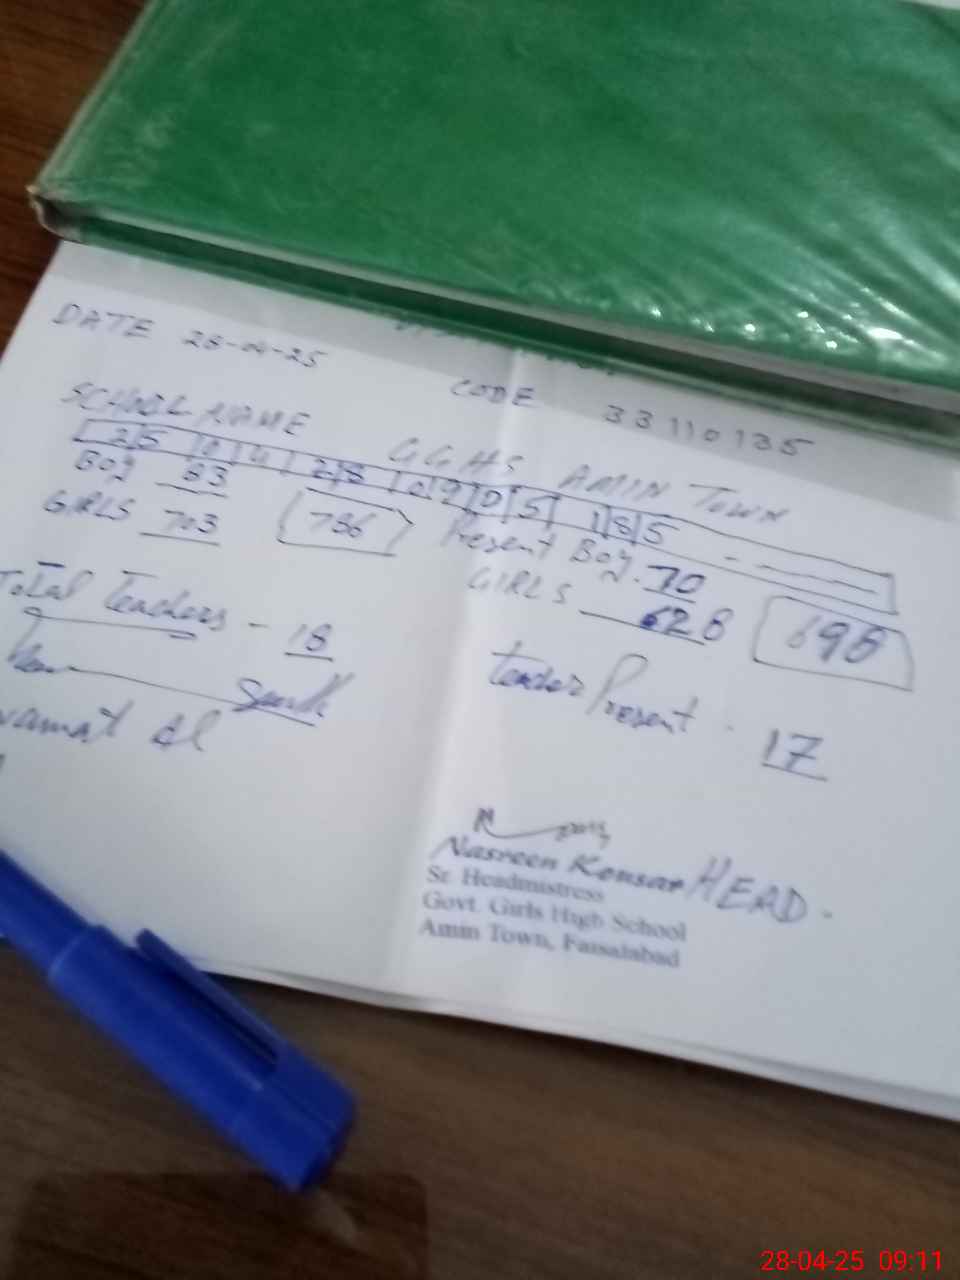 DATE 28-04-25
CODE 33110135
SCHOOL NAME GGHS AMIN TOWN
Boy 83
GIRLS 703 786
Present Boy. 70
GIRLS 628 698
Total Teachers - 18
Teacher Present - 17
Nasreen Kousar HEAD.
Sr. Headmistress
Govt. Girls High School
Amin Town, Faisalabad
28-04-25 09:11